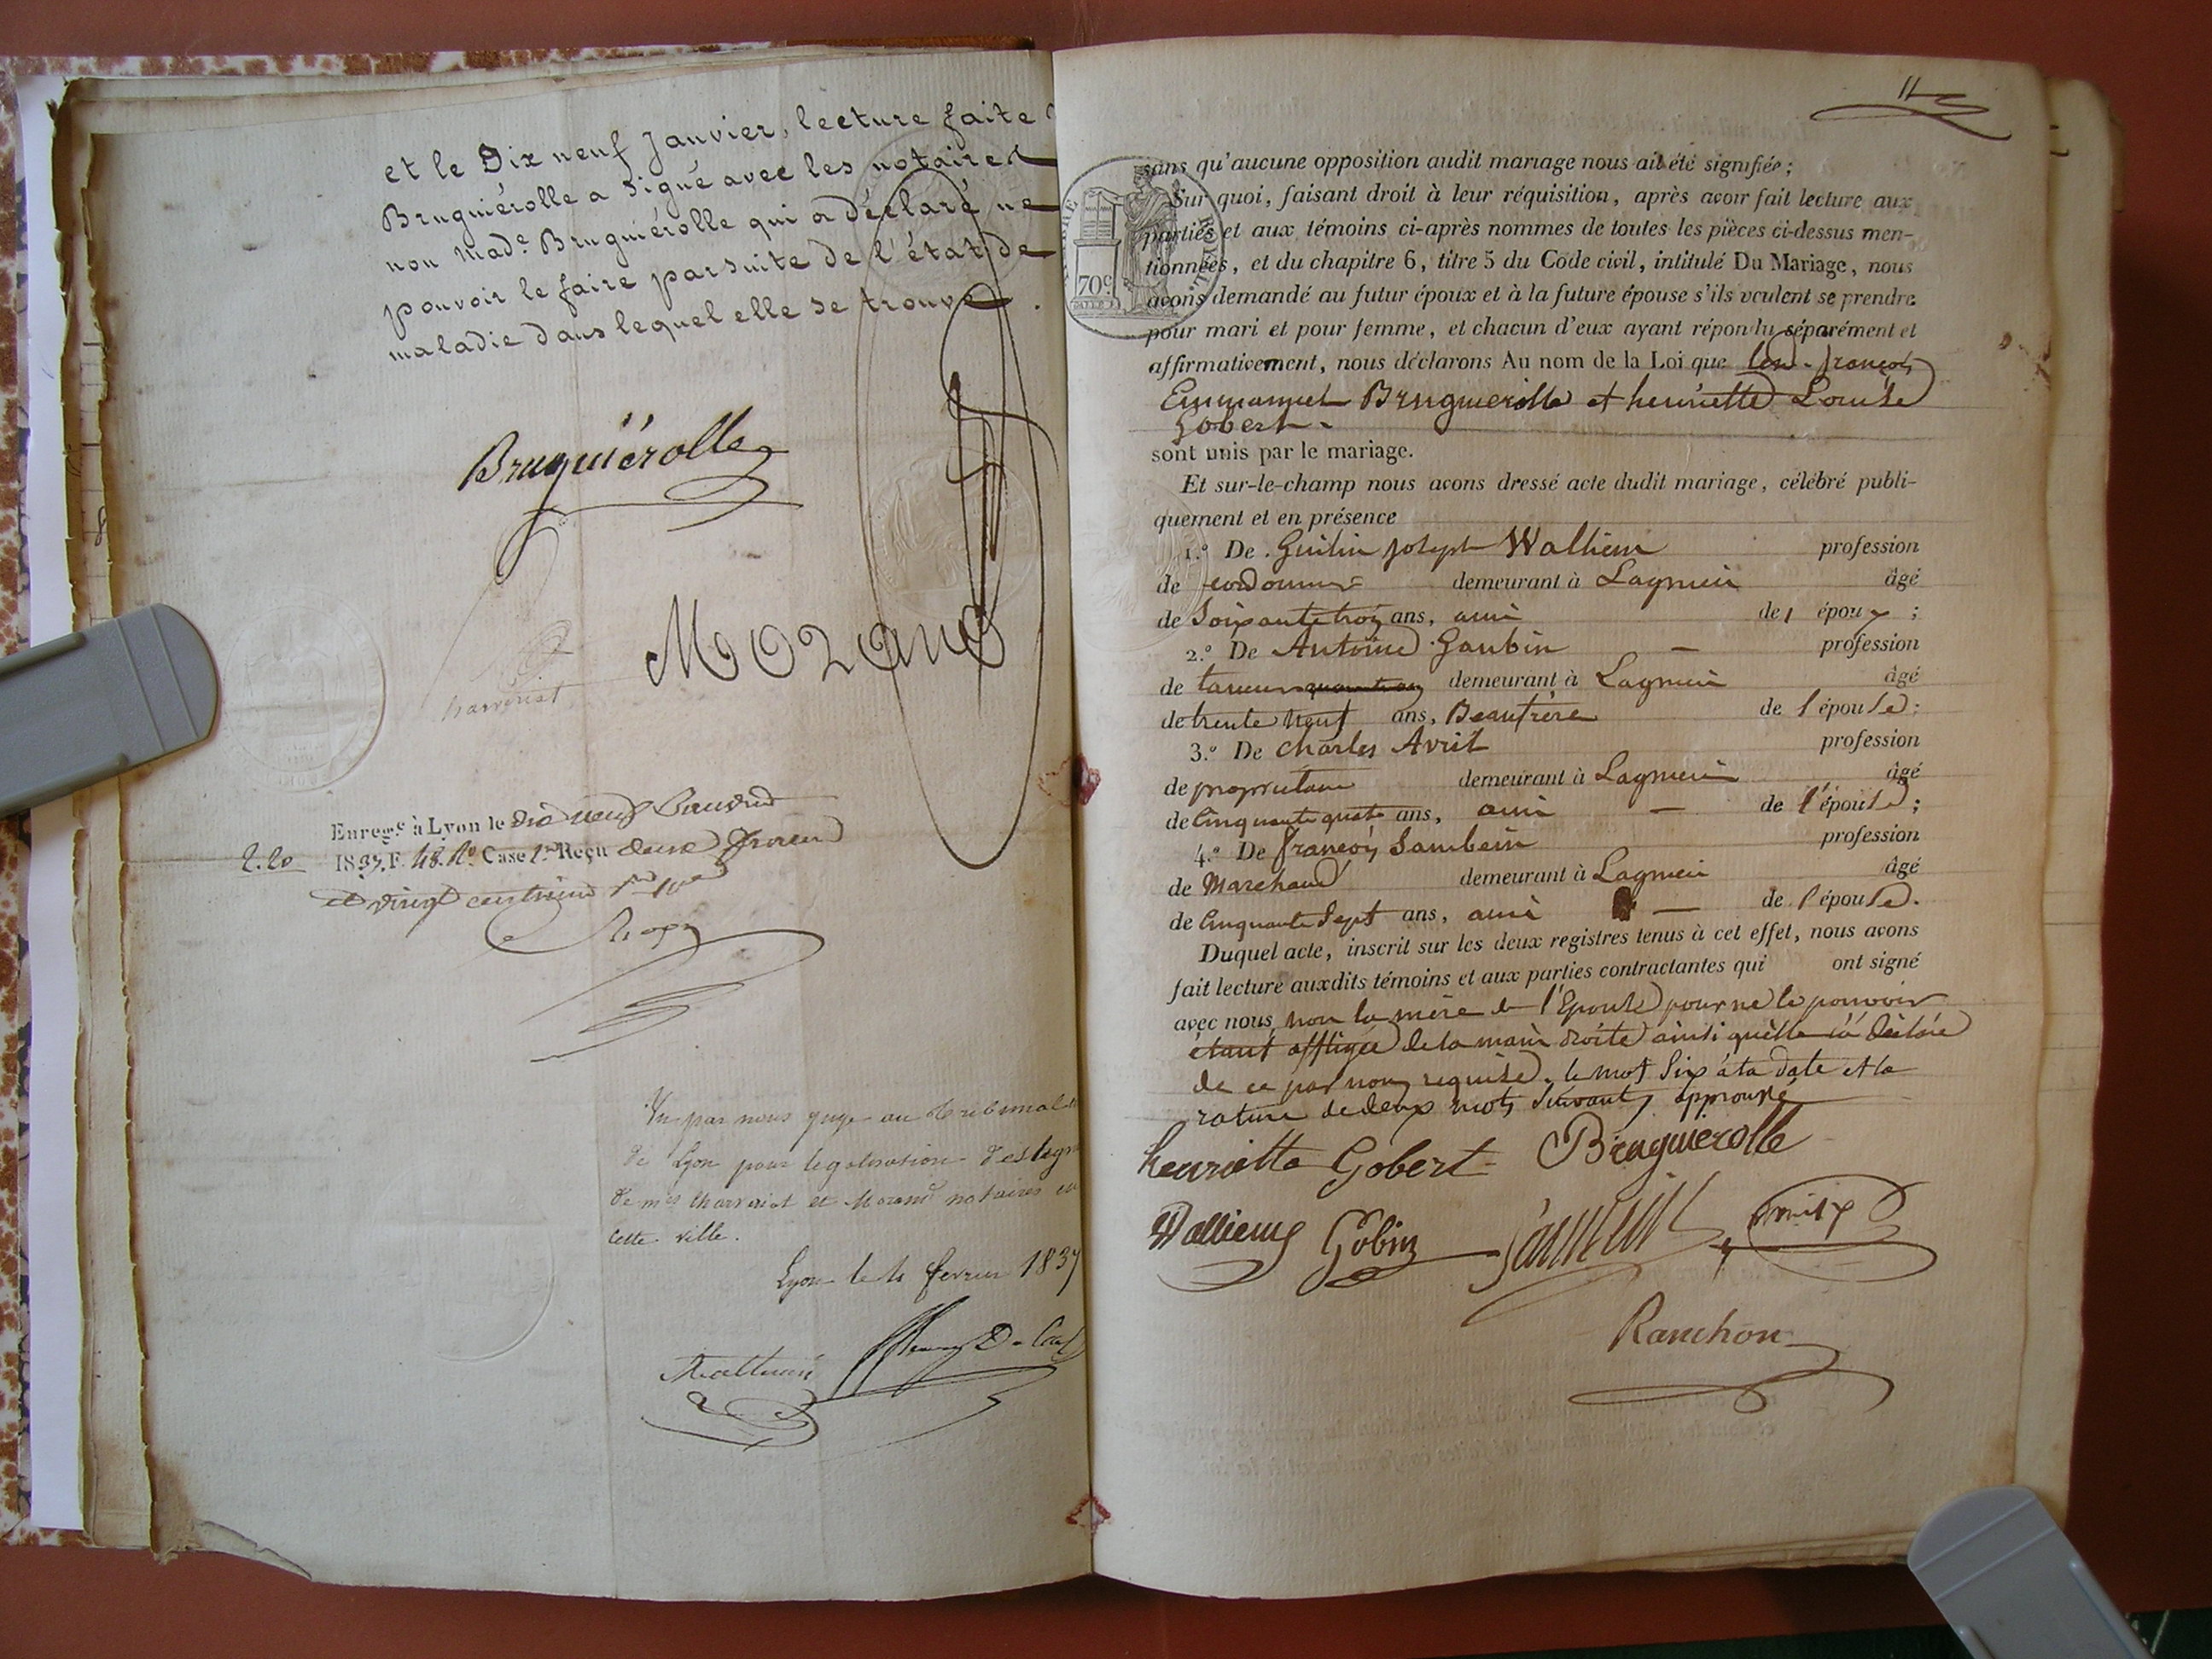 et le Dix neuf Janvier, lecture faite
Bruguiérolle a signé avec les notaires
non Made. Bruguiérolle qui a déclaré ne
pouvoir le faire par suite de l'état de
maladie dans lequel elle se trouve.
Bruguiérolle
Morand
Charveriat
Enregé. à Lyon le dix neuf Janvier
2.20 1837. F. 48. Ro. Case 1re Reçu deux francs
et vingt centimes
Vu par nous juge au tribunal
de Lyon pour legalisation des sign
de mes Charveriat et Morand notaires en
cette ville.
Lyon le 4 fevrier 1837
11
sans qu'aucune opposition audit mariage nous ait été signifiée ;
Sur quoi, faisant droit à leur réquisition, après avoir fait lecture aux
parties et aux témoins ci-après nommes de toutes les pièces ci-dessus men-
tionnées, et du chapitre 6, titre 5 du Code civil, intitulé Du Mariage, nous
avons demandé au futur époux et à la future épouse s'ils veulent se prendre
pour mari et pour femme, et chacun d'eux ayant répondu séparément et
affirmativement, nous déclarons Au nom de la Loi que françois
Emmanuel Bruguierolle et henriette Louise
Gobert.
sont unis par le mariage.
Et sur-le-champ nous avons dressé acte dudit mariage, célébré publi-
quement et en présence
1.º De Joseph Walliem profession
de cordonnier demeurant à Lagnieu âgé
de Soixante trois ans, ami de l époux ;
2.º De Antoine Gaubin profession
de taneur demeurant à Lagnieu âgé
de trente neuf ans, Beaufrère de l épouse ;
3.º De Charles Avril profession
de propriétaire demeurant à Lagnieu âgé
de Cinquante quatre ans, ami de l'épouse ;
4.º De françois Sambein profession
de Marchand demeurant à Lagnieu âgé
de Cinquante Sept ans, ami de l'épouse.
Duquel acte, inscrit sur les deux registres tenus à cet effet, nous avons
fait lecture auxdits témoins et aux parties contractantes qui ont signé
avec nous non la mère de l'Epouse pour ne le pouvoir
étant affligée de la main droite ainsi quelle la déclaré
de ce par nous requise. le mot Six à la date et la
rature de deux mots suivants approuvé
henriette Gobert Bruguierolle
Walliem Gobin
Ranchon
70c.